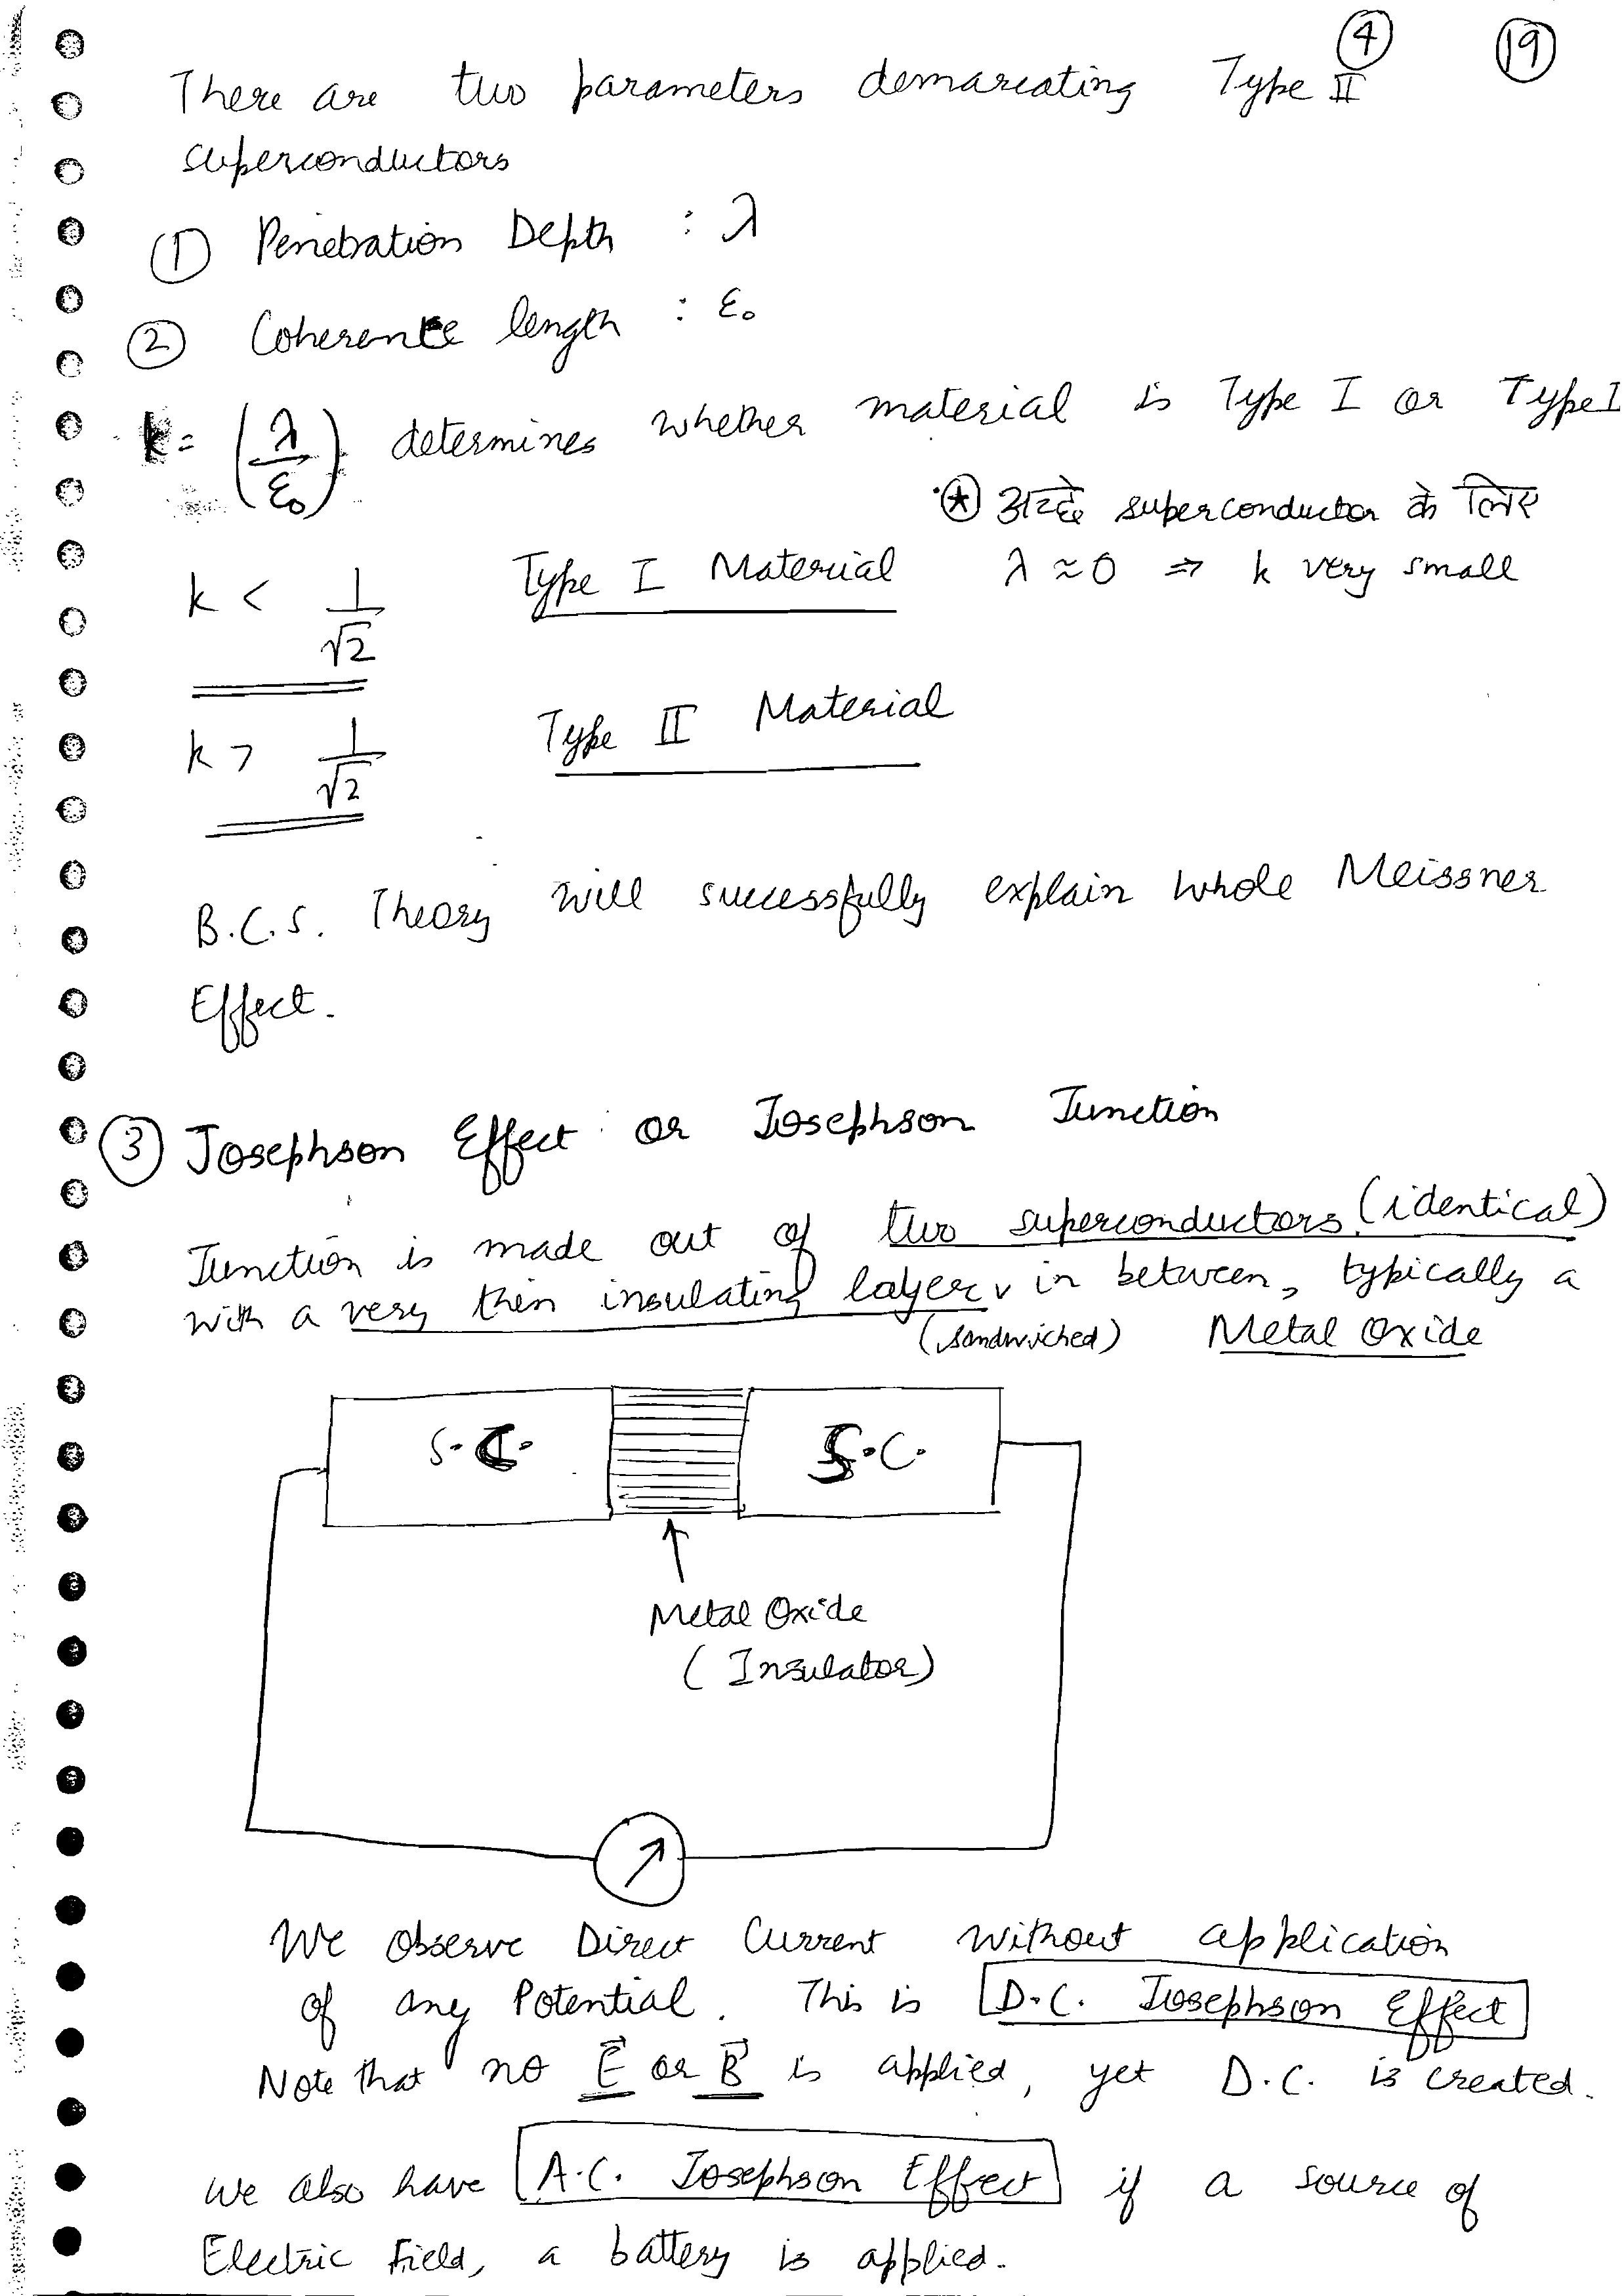 ④ ⑲
There are two parameters demarcating Type II
superconductors
① Penetration Depth : λ
② Coherence length : ε₀
k = (λ/ε₀) determines whether material is Type I or Type I
⊛ अच्छे superconductor के लिए
k < 1/√2 Type I Material λ ≈ 0 ⇒ k very small
k > 1/√2 Type II Material
B.C.S. Theory will successfully explain whole Meissner
Effect.
③ Josephson Effect or Josephson Junction
Junction is made out of two superconductors (identical)
with a very thin insulating layer in between, typically a
(sandwiched) Metal Oxide
S.C. S.C.
Metal Oxide
(Insulator)
We observe Direct Current without application
of any Potential. This is D.C. Josephson Effect
Note that no E⃗ or B⃗ is applied, yet D.C. is created.
We also have A.C. Josephson Effect if a source of
Electric Field, a battery is applied.